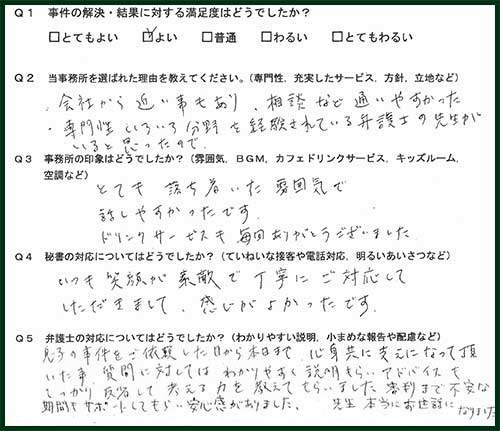 Q1 事件の解決・結果に対する満足度はどうでしたか?
□とてもよい ☑よい □普通 □わるい □とてもわるい
Q2 当事務所を選ばれた理由を教えてください。(専門性, 充実したサービス, 方針, 立地など)
・会社から近い事もあり、相談など通いやすかった
・専門性 いろいろ分野を経験されている弁護士の先生が
いると思ったので。
Q3 事務所の印象はどうでしたか?(雰囲気, BGM, カフェドリンクサービス, キッズルーム,
空調など)
とても落ち着いた雰囲気で
話しやすかったです。
ドリンクサービスも毎回ありがとうございました
Q4 秘書の対応についてはどうでしたか?(ていねいな接客や電話対応, 明るいあいさつなど)
いつも笑顔が素敵で丁寧にご対応して
いただきまして、感じがよかったです。
Q5 弁護士の対応についてはどうでしたか?(わかりやすい説明, 小まめな報告や配慮など)
息子の事件をご依頼した日から本日まで、心身共に支えになって頂
いた事 質問に対してはわかりやすく説明もらいアドバイスも
しっかり反省して考える力を教えてもらいました 審判まで不安な
期間をサポートしてもらい安心感がありました、 先生本当にお世話に
なりました